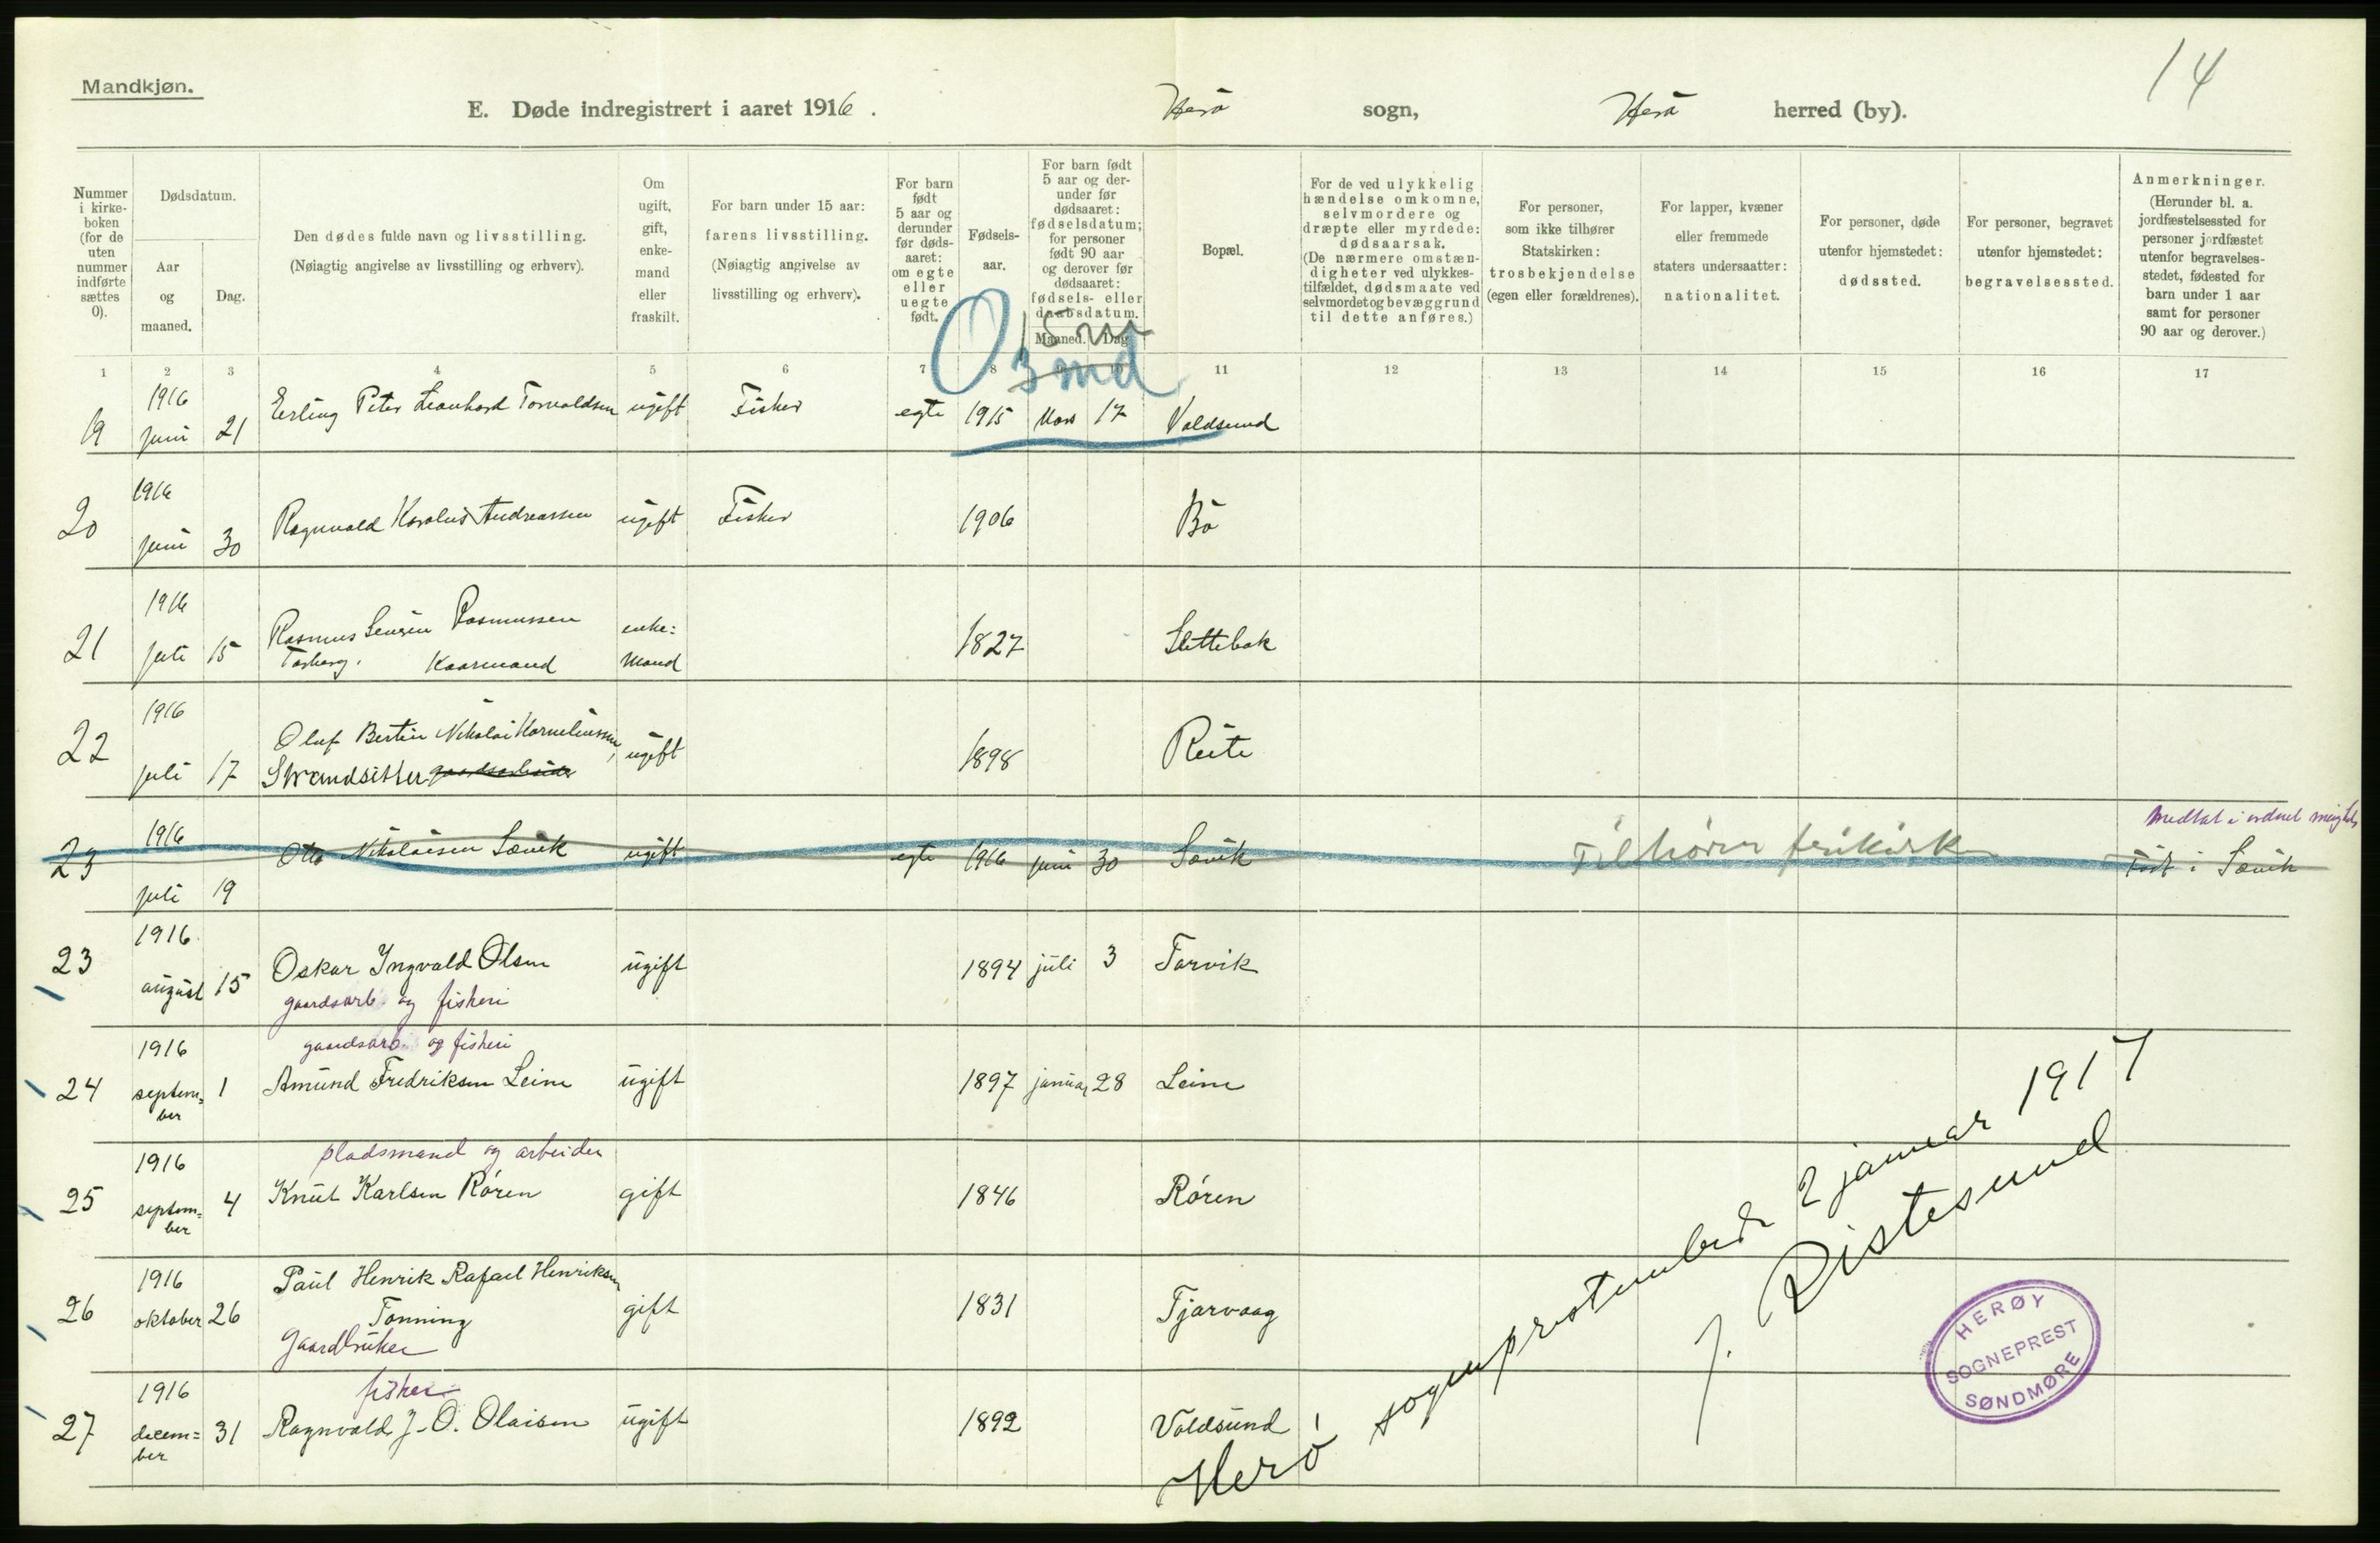 14
Mandkjøn.
E. Døde indregistrert i aaret 1916. Herö sogn, Herö herred (by).
Nummer i kirke-boken (for de uten nummer indførte sættes 0).
Dødsdatum.
Aar og maaned.
Dag.
Den dødes fulde navn og livsstilling.
(Nøiagtig angivelse av livsstilling og erhverv).
Om ugift, gift, enke-mand eller fraskilt.
For barn under 15 aar: farens livsstilling.
(Nøiagtig angivelse av livsstilling og erhverv).
For barn født 5 aar og derunder før døds-aaret: om egte eller uegte født.
Fødsels-aar.
For barn født 5 aar og der-under før dødsaaret: fødselsdatum; for personer født 90 aar og derover før dødsaaret: fødsels- eller daabsdatum.
Maaned. Dag.
Bopæl.
For de ved ulykkelig hændelse omkomne, selvmordere og dræpte eller myrdede: dødsaarsak.
(De nærmere omstæn-digheter ved ulykkes-tilfældet, dødsmaate ved selvmordet og bevæggrund til dette anføres.)
For personer, som ikke tilhører Statskirken: trosbekjendelse (egen eller forældrenes).
For lapper, kvæner eller fremmede staters undersaatter: nationalitet.
For personer, døde utenfor hjemstedet: dødssted.
For personer, begravet utenfor hjemstedet: begravelsessted.
Anmerkninger.
(Herunder bl. a. jordfæstelsessted for personer jordfæstet utenfor begravelses-stedet, fødested for barn under 1 aar samt for personer 90 aar og derover.)
1 2 3 4 5 6 7 8 9 10 11 12 13 14 15 16 17
19 1916 juni 21 Erling Peter Leonhard Torvaldsen ugift Fisker egte 1915 17 Voldsund
20 1916 juni 30 Ragnvald Karolius Andreassen ugift Fisker 1906 Bö
21 1916 juli 15 Rasmus Rasmussen enke=
Kaarmand mand 1827 Slettebak
22 1916 juli 17 Oluf Bertin Nikolai Korneliussen, ugift 1898 Reite
Strandsitter gaardsarbeider
23 1916 juli 19 Otto Nikolaisen Sævik ugift egte 1916 juni 30 Sævik Tilhører frikirk Født i Sævik
23 1916 august 15 Oskar Ingvald Olsen ugift 1894 juli 3 Tarvik
gaardsarb. og fiskeri
gaardsarb og fiskeri
24 1916 septem=ber 1 Amund Fredriksen Leine ugift 1897 januar 28 Leine
pladsmand og arbeider
25 1916 septem=ber 4 Knut Karlsen Røren gift 1846 Røren
26 1916 oktober 26 Paul Henrik Rafael Henriksen
Tonning gift 1831 Tjørvaag
Gaardbruker
fisker
27 1916 decem=ber 31 Ragnvald J. O. Olaisen ugift 1892 Voldsund
Herö sogneprestembede 2 januar 1917
J. Ristesund
HERØY
SOGNEPREST
SØNDMØRE